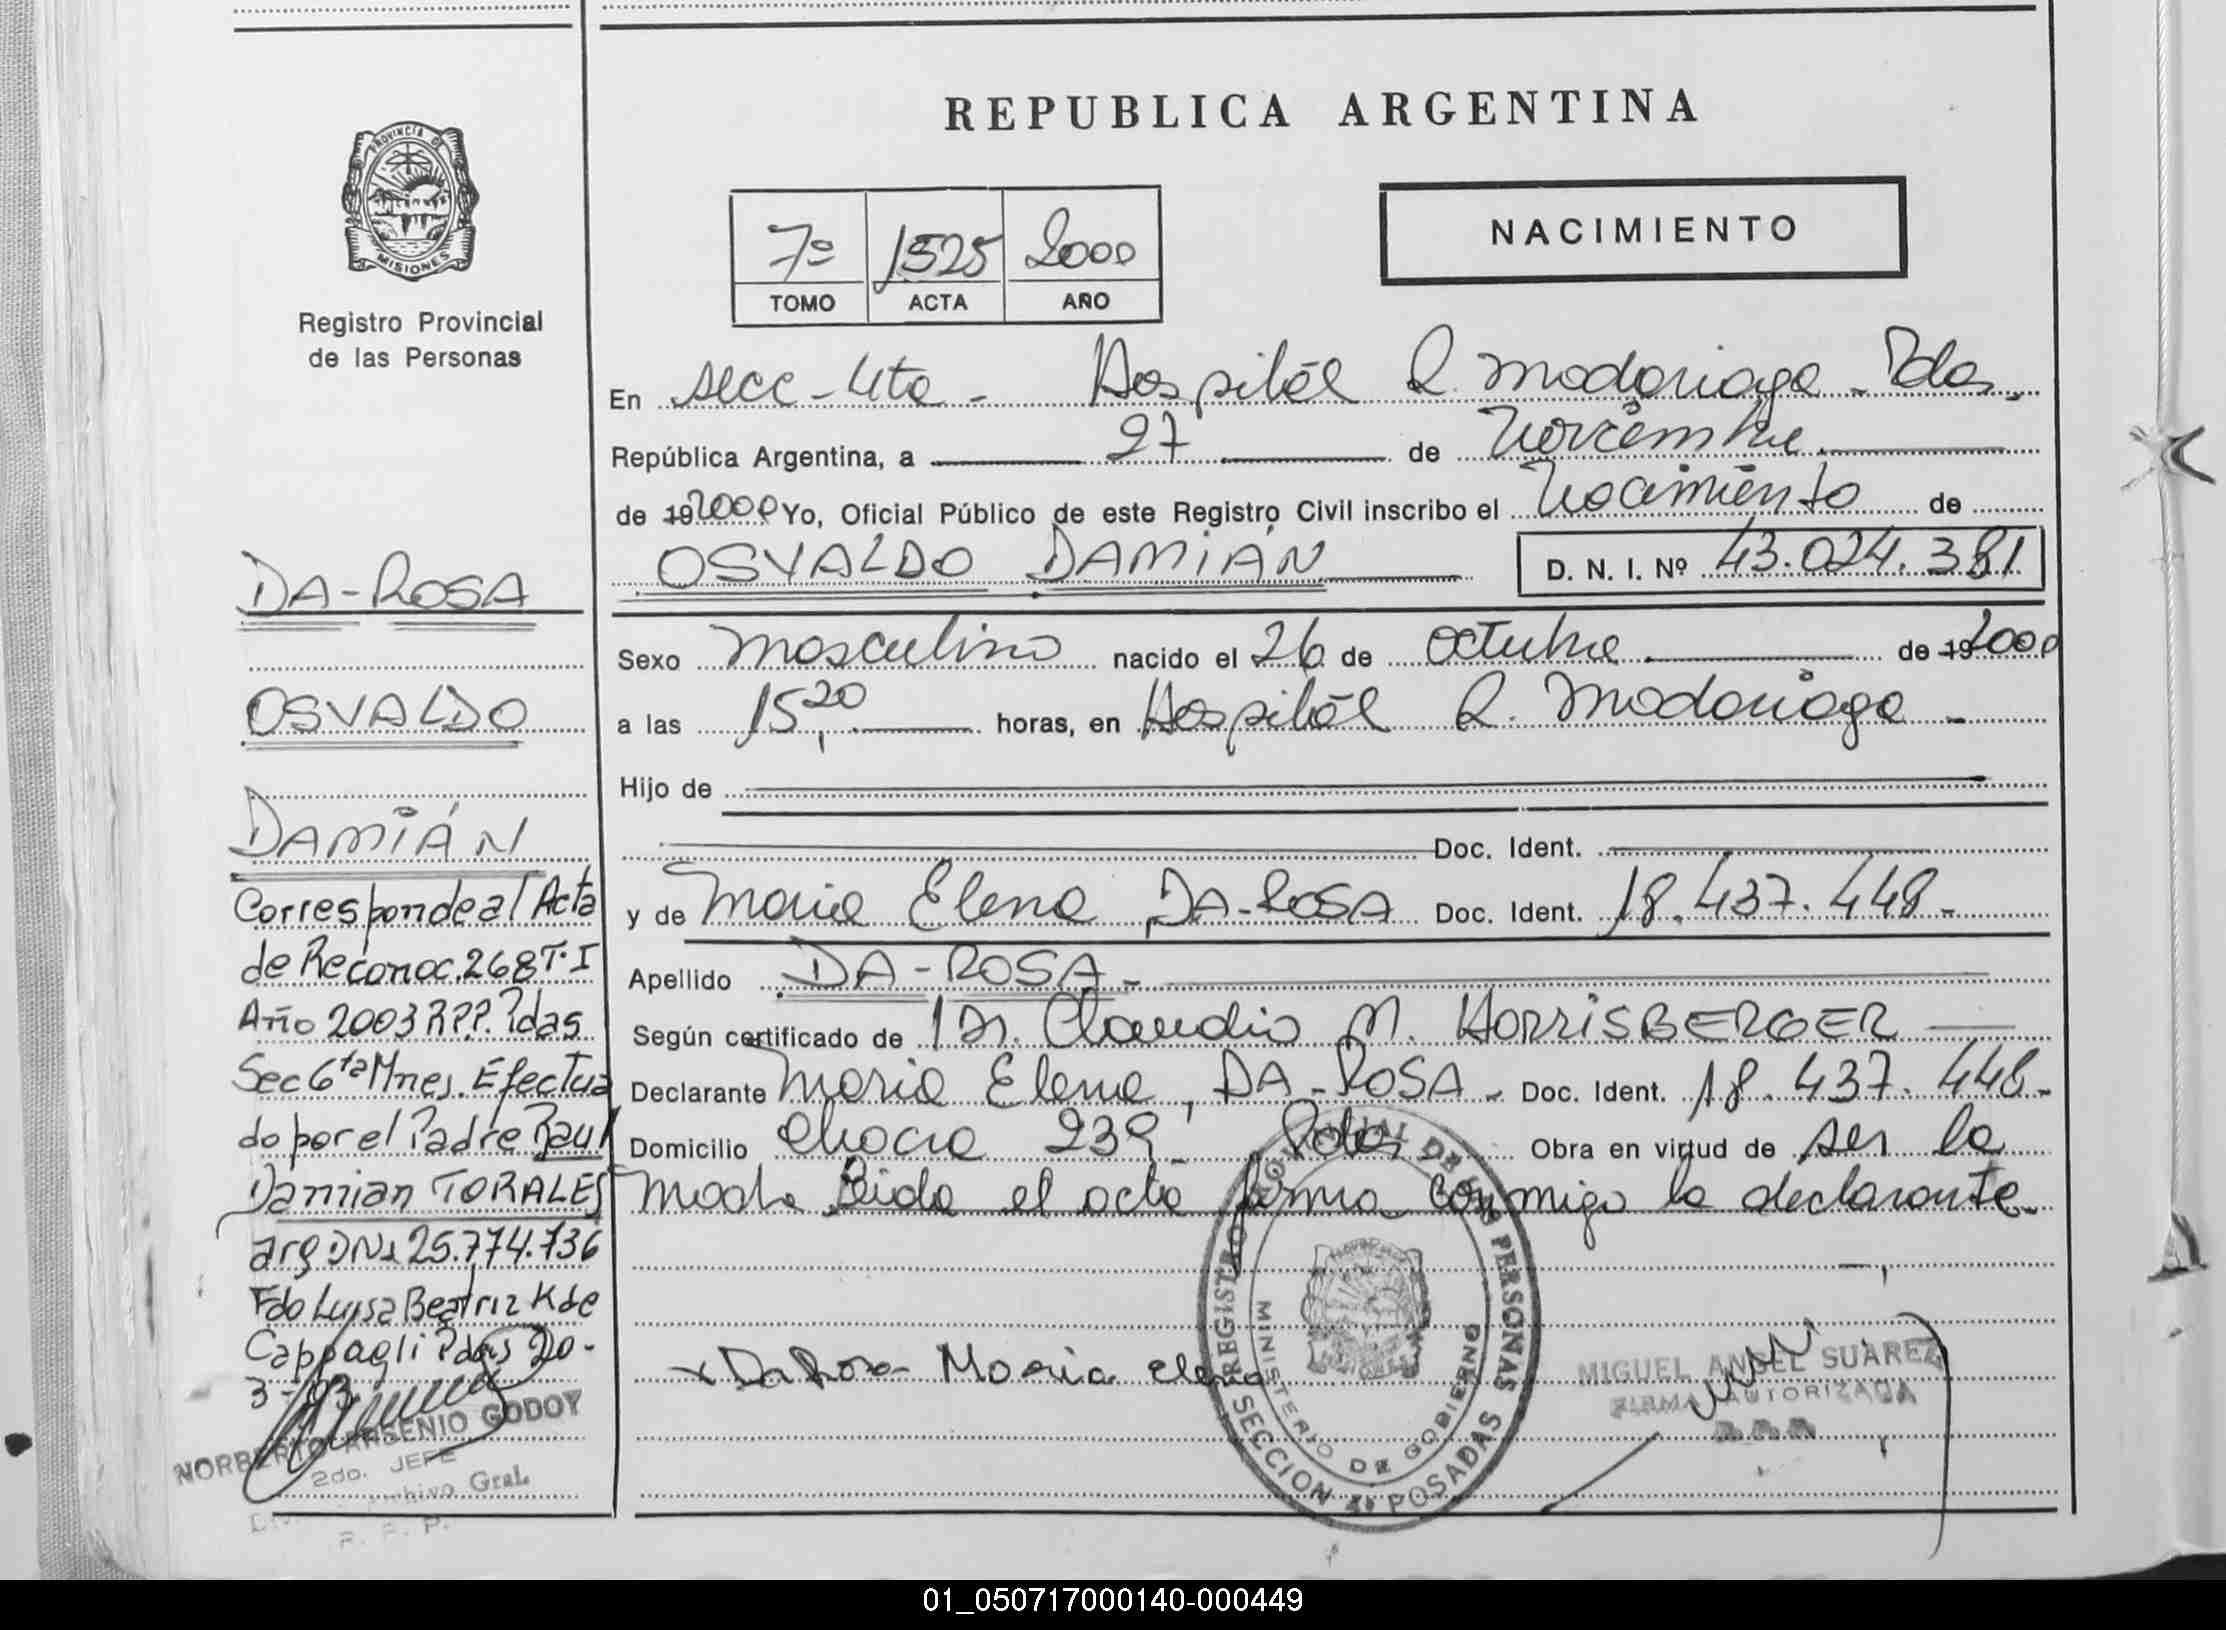 REPUBLICA ARGENTINA
PROVINCIA DE
MISIONES
Registro Provincial
de las Personas
7º 1525 2000
TOMO ACTA AÑO
NACIMIENTO
En secc-4ta- Hospital R. Madariaga - Pdas.
República Argentina, a 27 de Noviembre
de 19 2000 Yo, Oficial Público de este Registro Civil inscribo el Nacimiento de
OSVALDO DAMIÁN D. N. I. Nº 43.024.381
Sexo Masculino nacido el 26 de Octubre de 19 2000
a las 15,20 horas, en Hospital R. Madariaga -
Hijo de
Doc. Ident.
y de Maria Elena DA-ROSA Doc. Ident. 18.437.448-
Apellido DA-ROSA-
Según certificado de Dr. Claudio M. HORRISBERGER
Declarante Maria Elena, DA-ROSA- Doc. Ident. 18.437.448-
Domicilio Chacra 239- Pdas Obra en virtud de ser la
Madre Leida el acta firma conmigo la declarante-
DA-ROSA
OSVALDO
DAMIÁN
Corresponde al Acta
de Reconoc. 268 T·I
Año 2003 R.P.P. Pdas
Sec 6ta Mnes. Efectua
do por el Padre Raul
Damian TORALES
arg DNI 25.774.736
Fdo Luisa Beatriz K de
Cappagli Pdas 20-
3-03
NORBERTO ARSENIO GODOY
2do. JEFE
Archivo Gral.
R. P. P.
x DaRosa Maria elena
REGISTRO PROVINCIAL DE LAS PERSONAS
MINISTERIO DE GOBIERNO
SECCION 4ª POSADAS
MIGUEL ANGEL SUAREZ
FIRMA AUTORIZADA
01_050717000140-000449